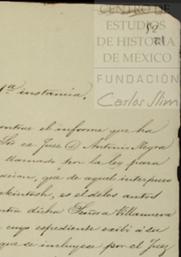 CENTRO DE
ESTUDIOS
DE HISTORIA
DE MÉXICO
FUNDACIÓN
Carlos Slim
1ª instancia.
contra el informe que ha
Juez D. Antonio Neyra
llamado por la ley para
que de aquel interpuso
es el de los autos
dicha Señora Villanueva
cuyo espediente exibí á su
que se incluyese por el Juez